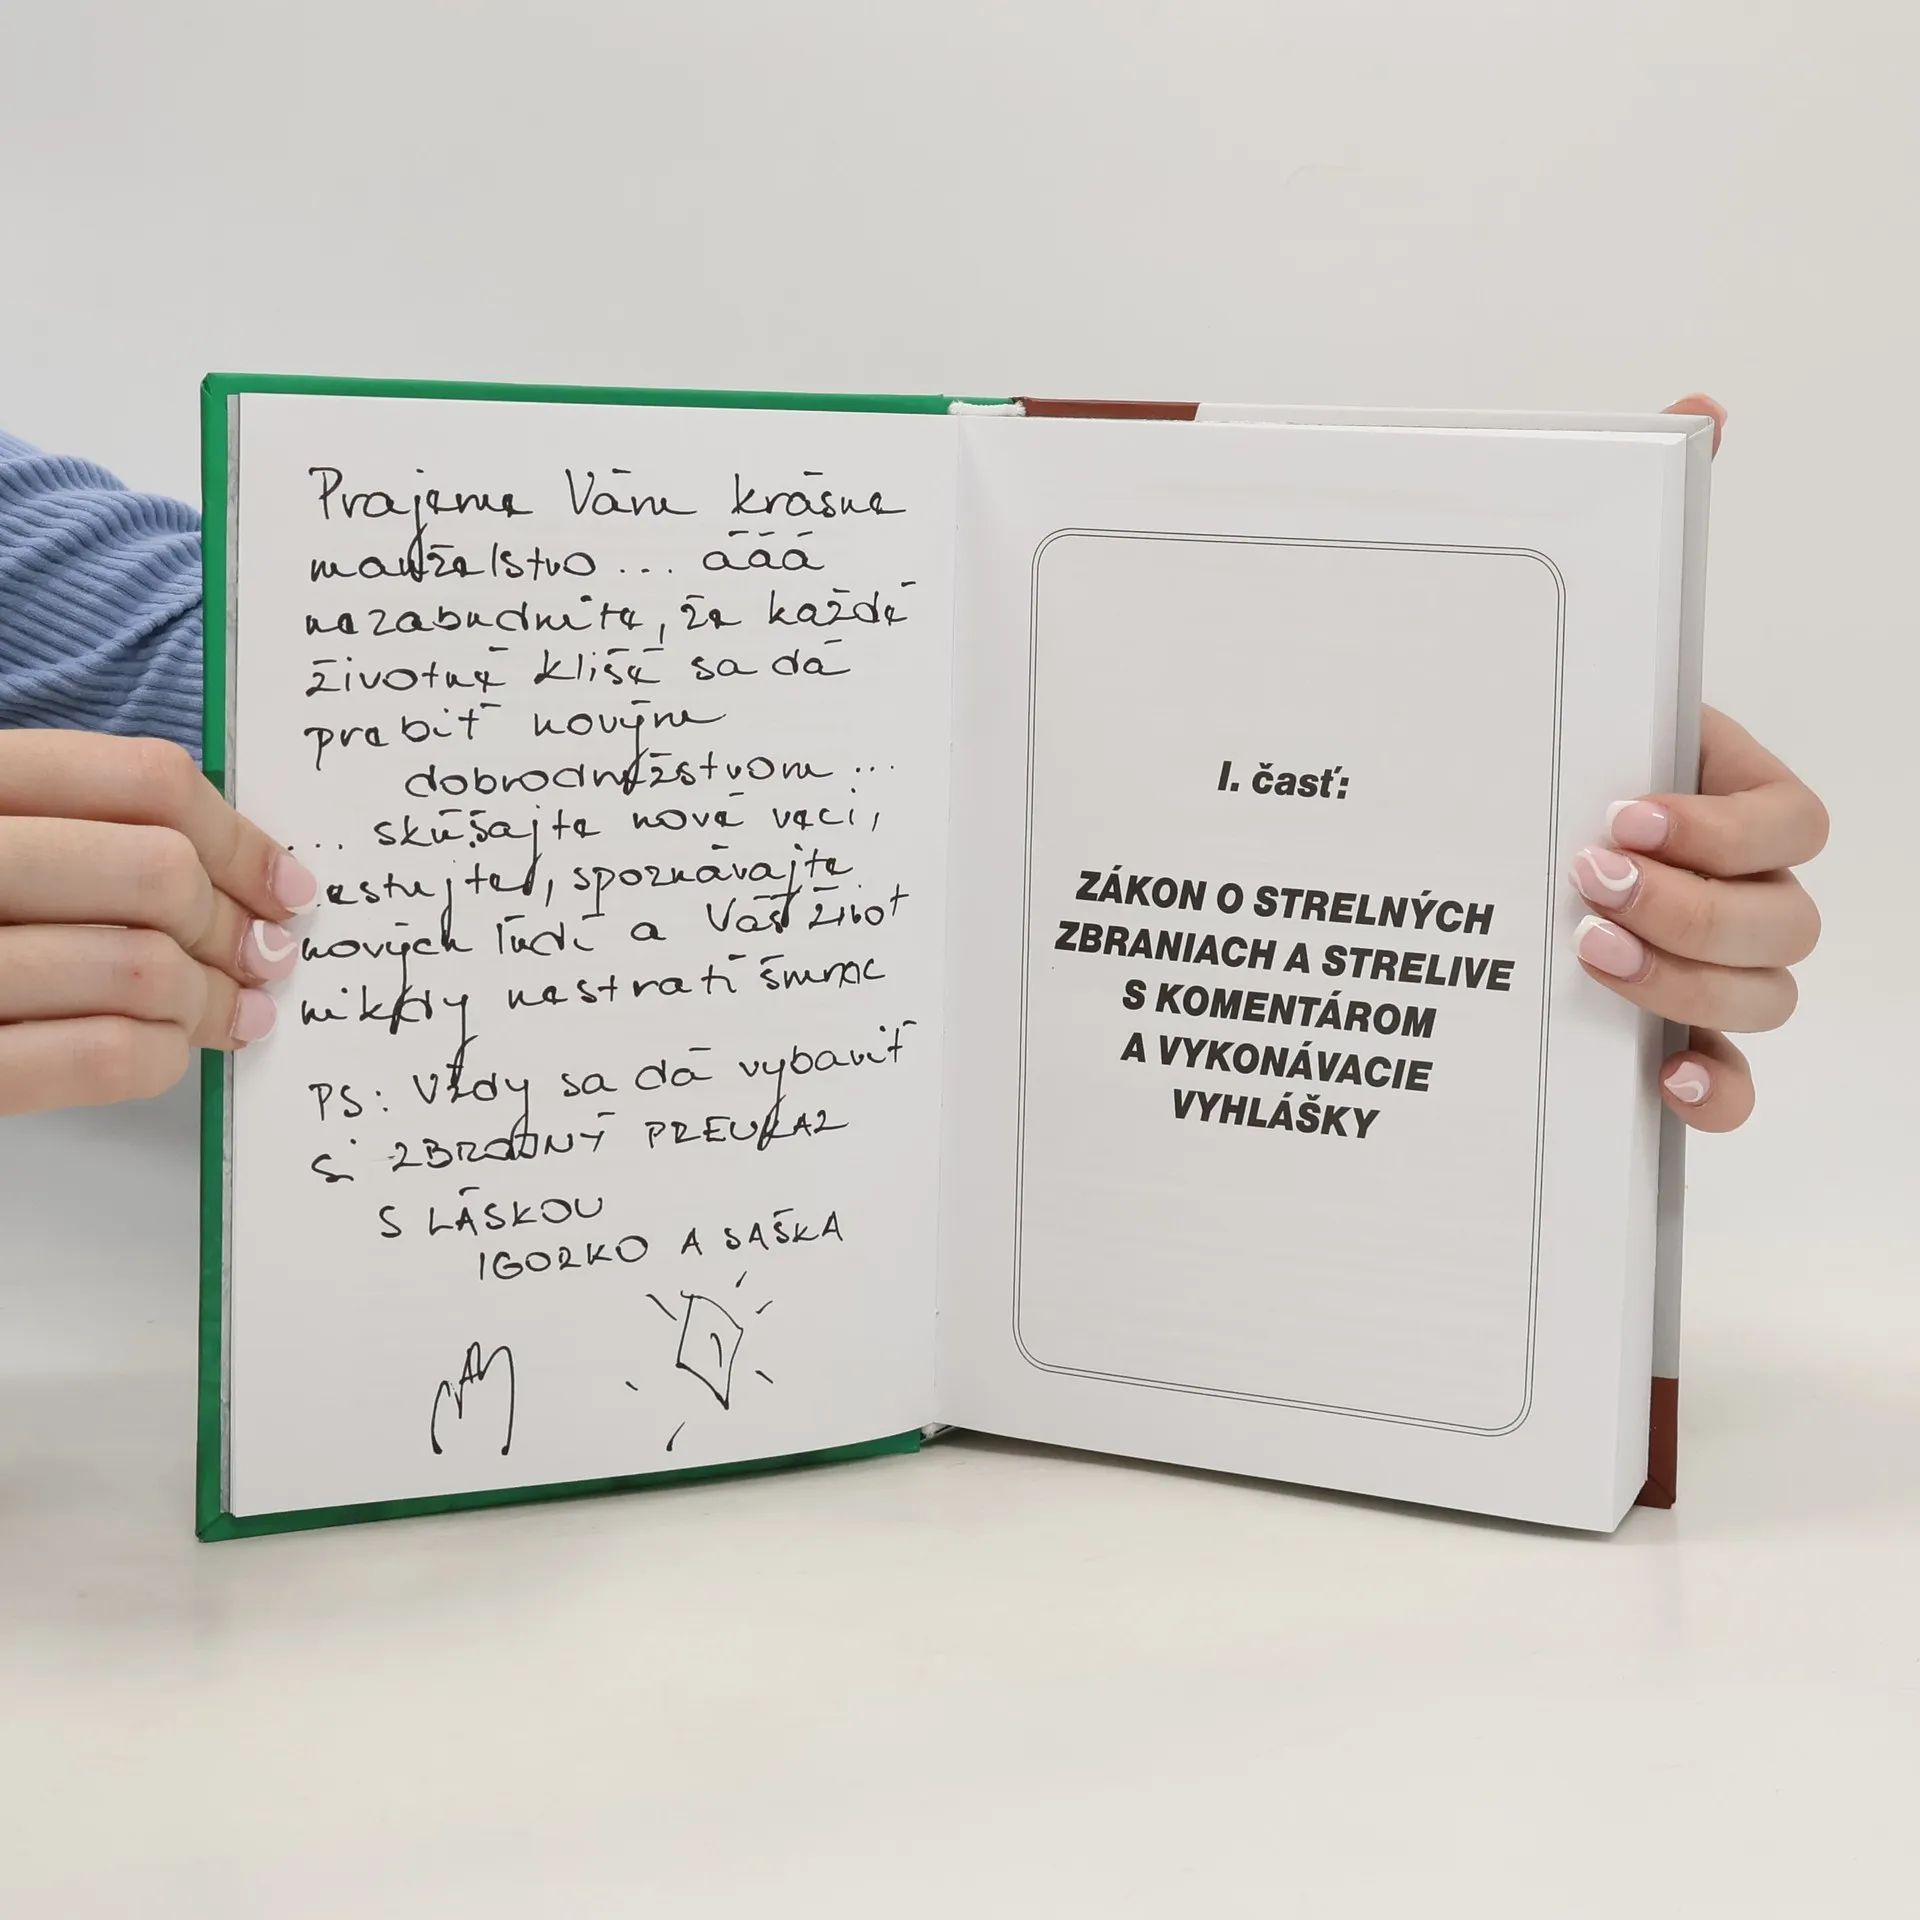 Prajeme Vám krásne
manželstvo ... ááá
nezabudnite, že každé
životné klišé sa dá
prebiť novým
dobrodružstvom ...
... skúšajte nové veci,
cestujte, spoznávajte
nových ľudí a Váš život
nikdy nestratí šmrnc
PS: Vždy sa dá vybaviť
si ZBROJNÝ PREUKAZ
S LÁSKOU
IGORKO A SAŠKA
I. časť:
ZÁKON O STRELNÝCH
ZBRANIACH A STRELIVE
S KOMENTÁROM
A VYKONÁVACIE
VYHLÁŠKY